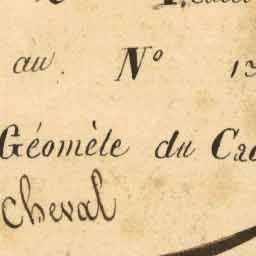 au. Nº 13
Géomèle du Cad
Cheval